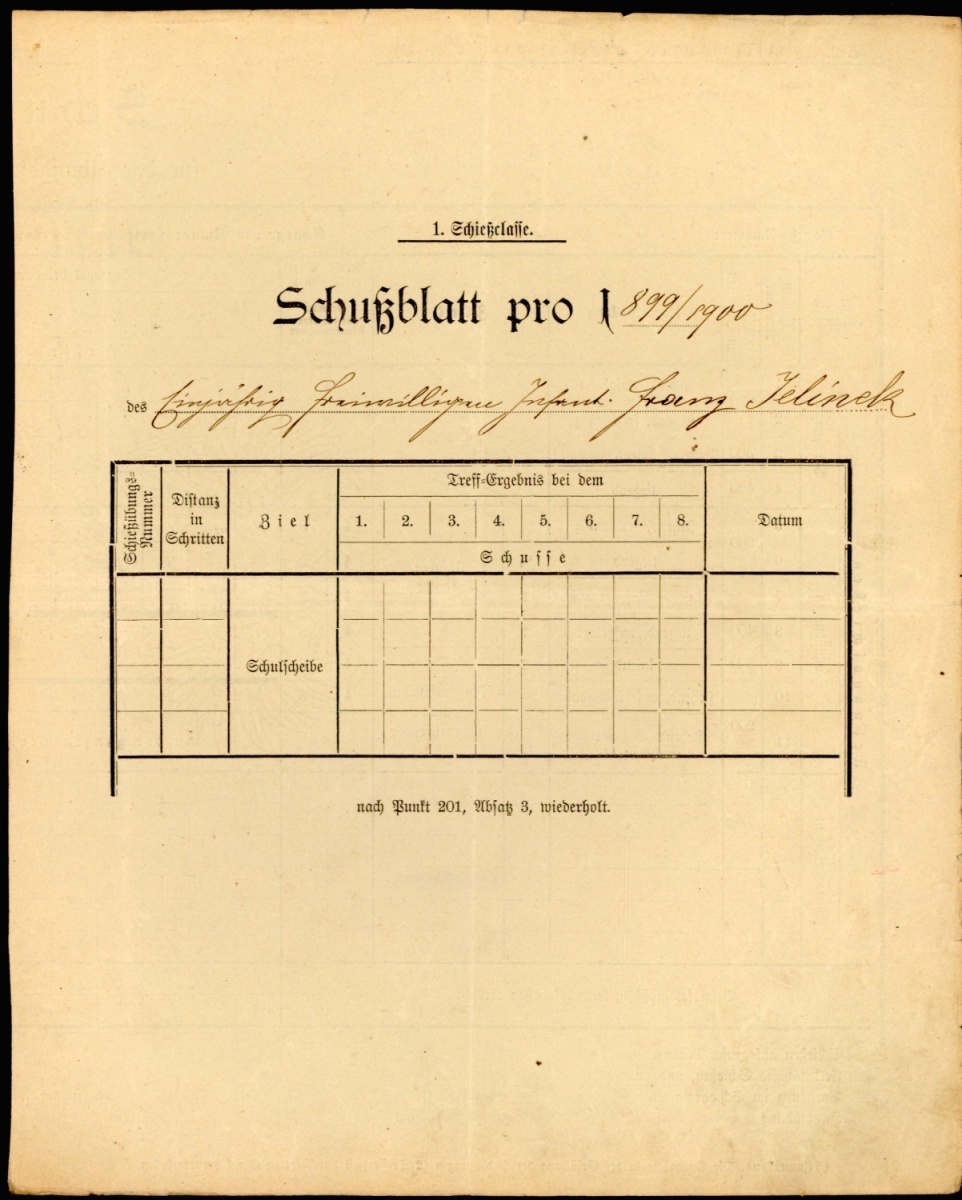 1. Schießclasse.
Schußblatt pro 1899/1900
des Einjährig freiwilligen Infant. Franz Jelinek
Schießübungs-
Nummer
Distanz
in
Schritten
Ziel
Treff-Ergebnis bei dem
1. 2. 3. 4. 5. 6. 7. 8.
Schusse
Datum
Schulscheibe
nach Punkt 201, Absatz 3, wiederholt.